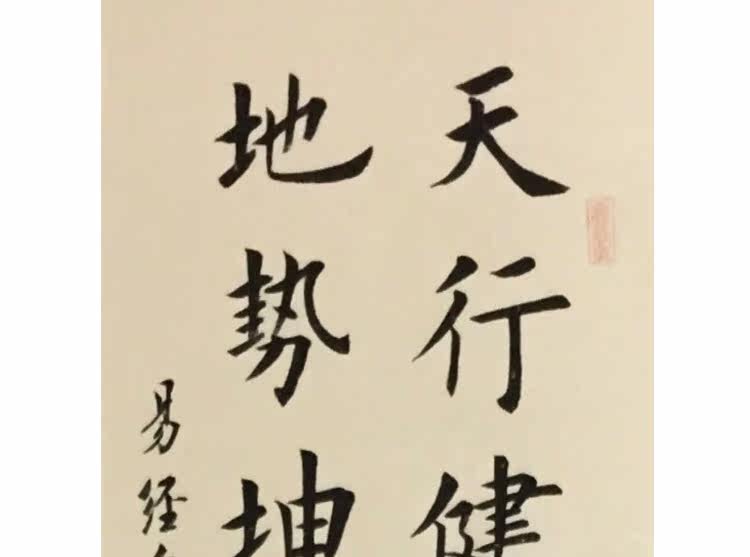 天行健
地势坤
易经